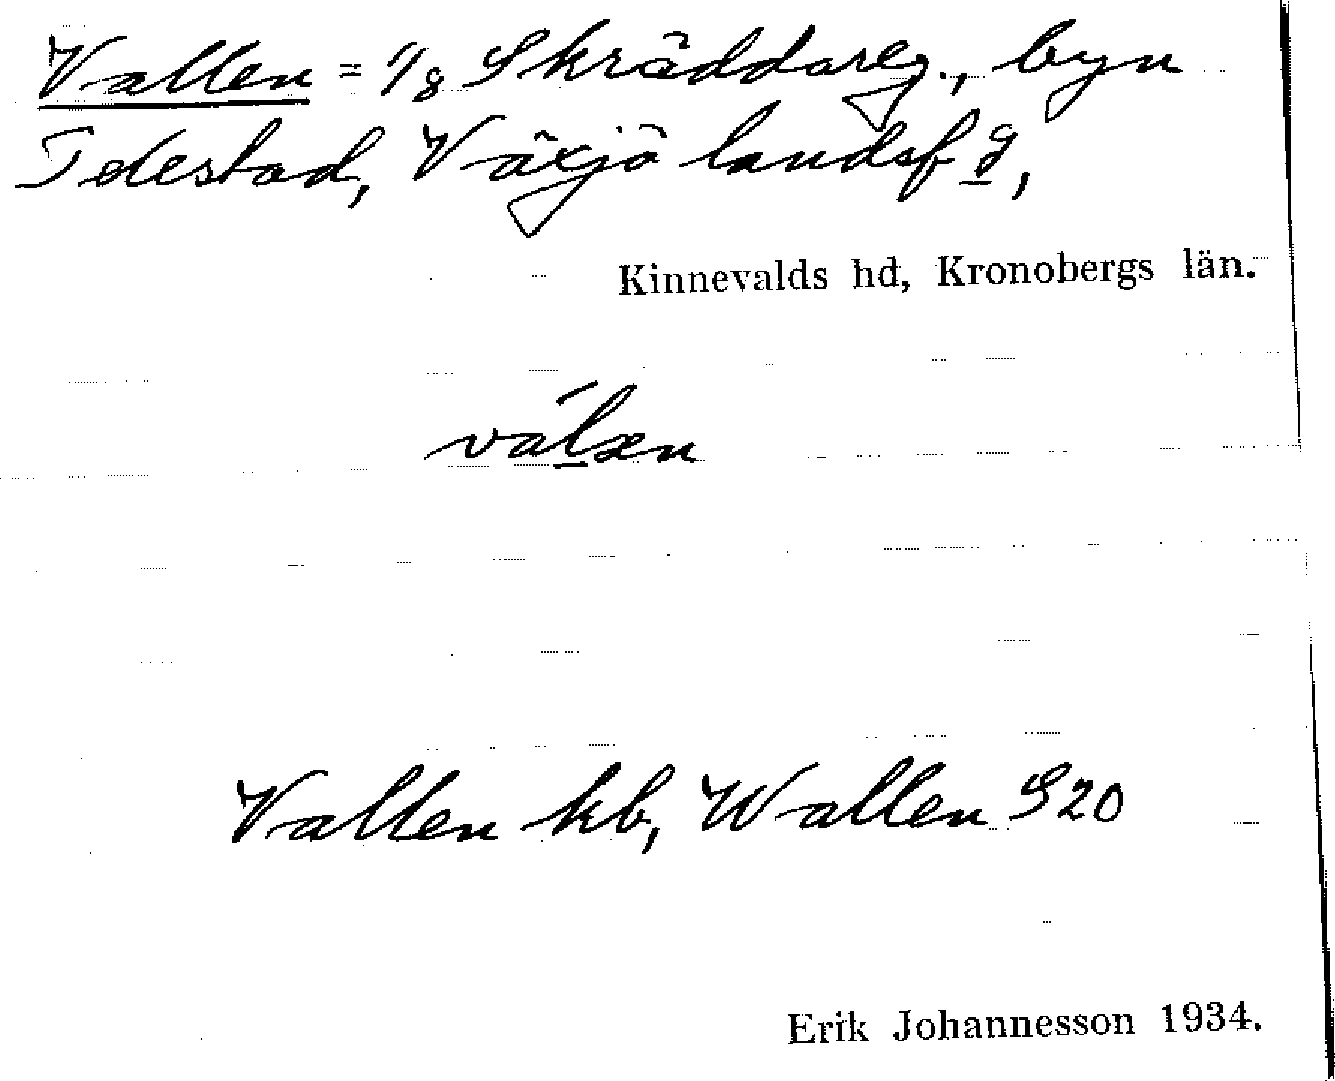 Vallen = 1/8 Skräddareg., byn
Tdestad, Växjö landsf g,
Kinnevalds hd, Kronobergs län.
válæn
Vallen kb, Wallen S20
Erik Johannesson 1934.